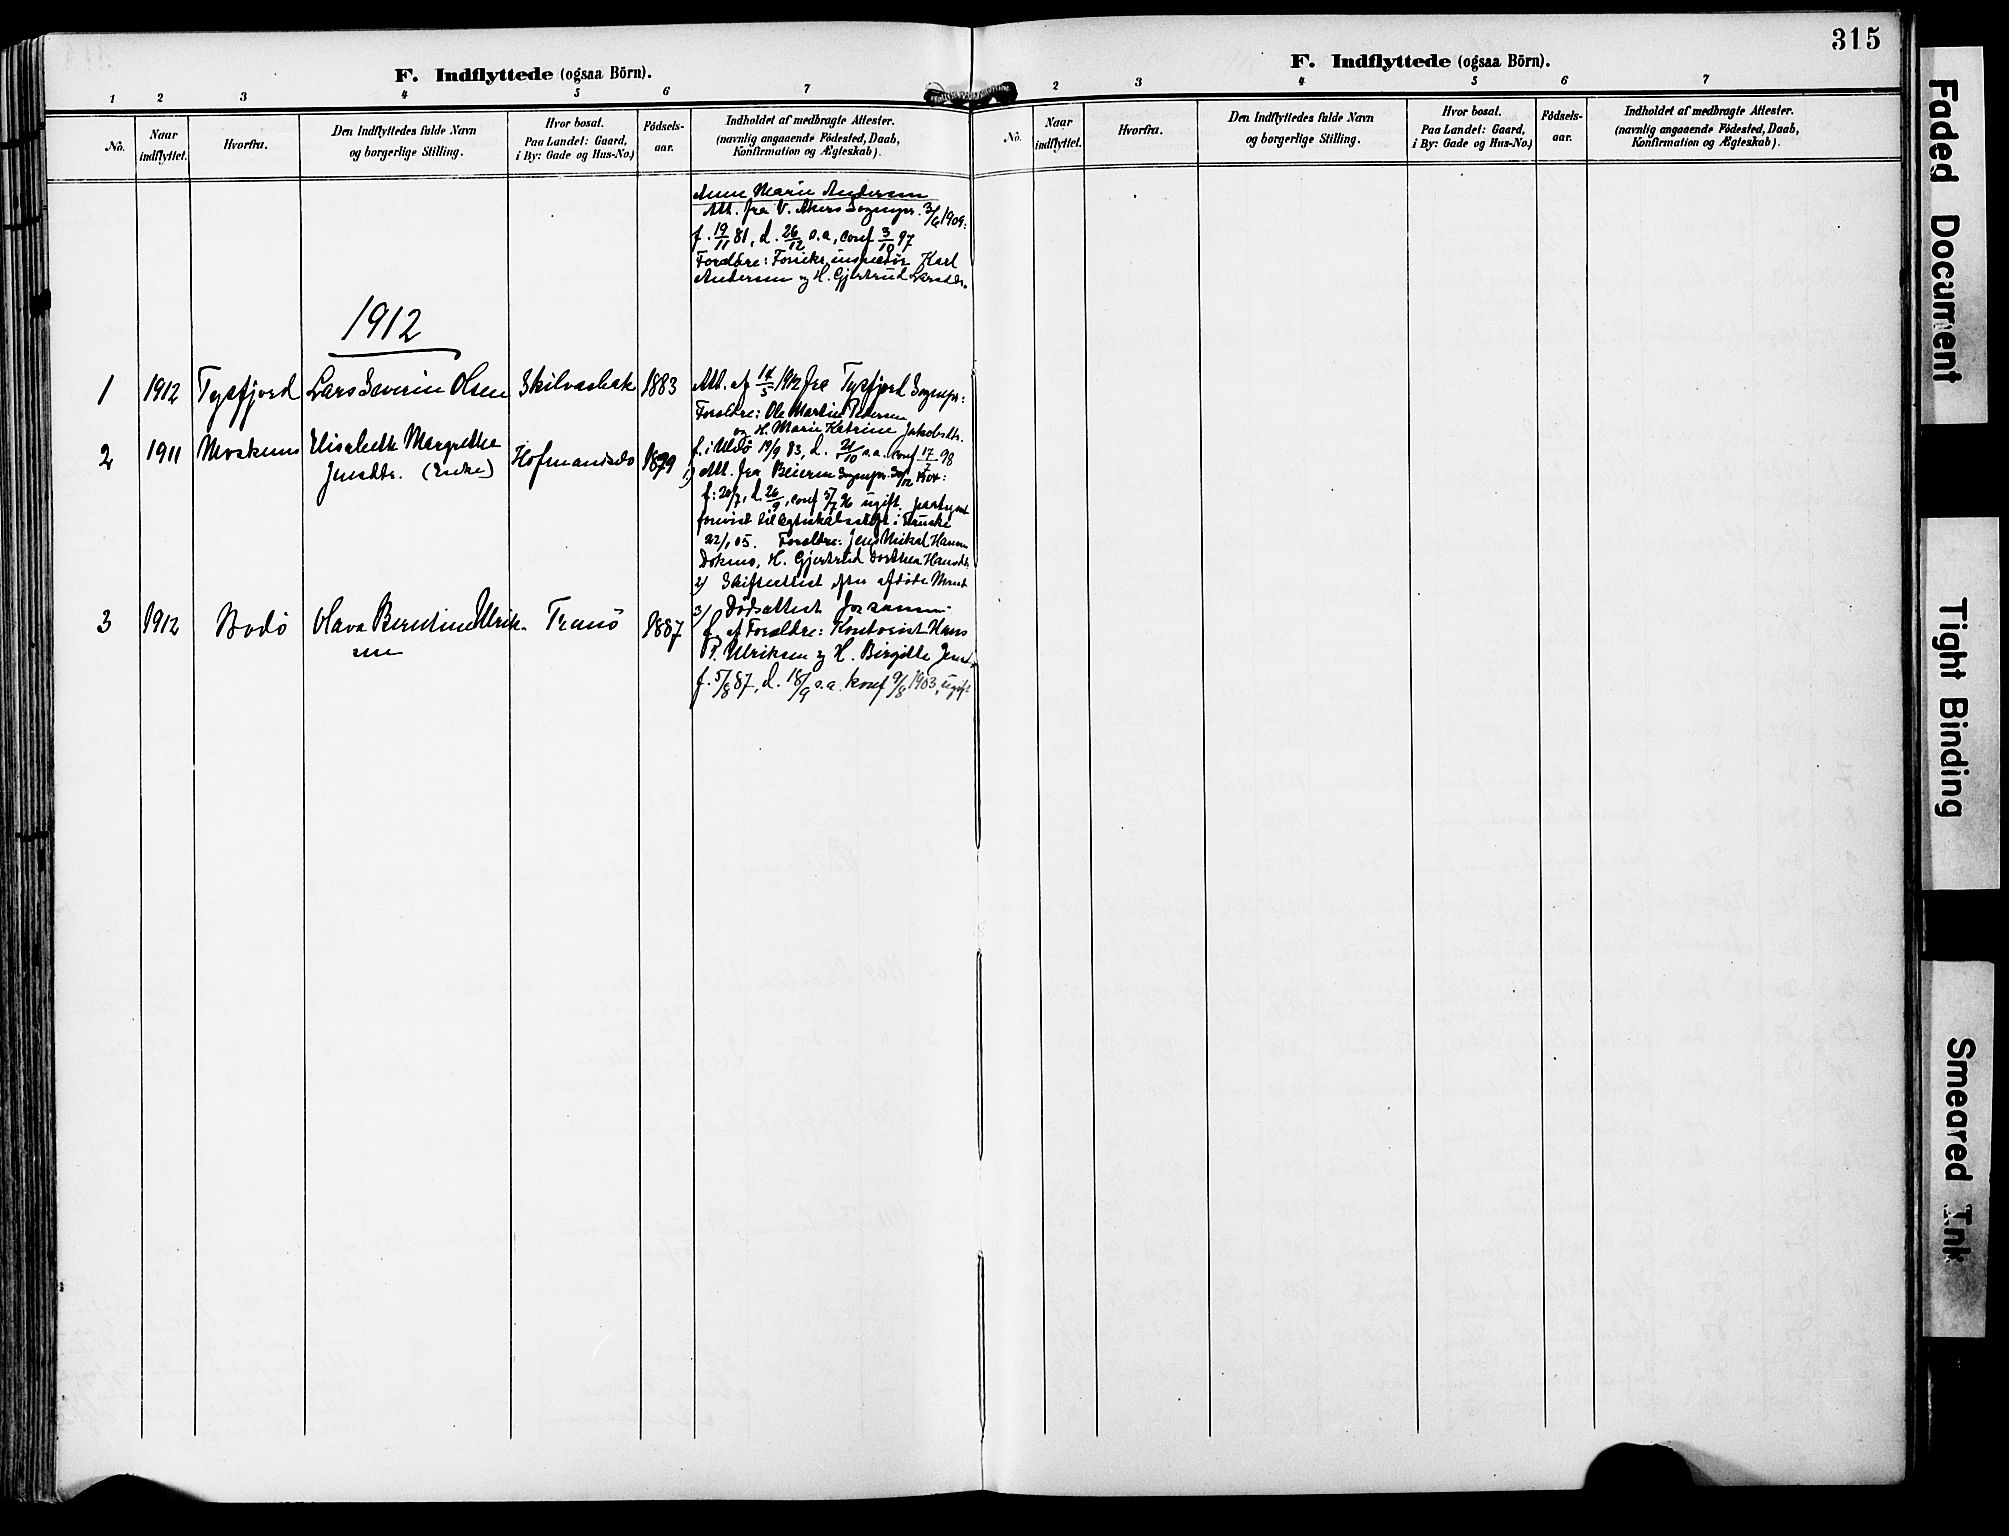 315
F. Indflyttede (ogsaa Börn).
1 2 3 4 5 6 7
No.
Naar indflyttet.
Hvorfra.
Den Indflyttedes fulde Navn
og borgerlige Stilling.
Hvor bosat.
Paa Landet: Gaard,
i By: Gade og Hus-No.)
Födsels-
aar.
Indholdet af medbragte Attester.
(navnlig angaaende Födested, Daab,
Konfirmation og Ægteskab).
Anne Marie Andersen
Att. fra V. Akers Sognepr. 3/6 1909:
f. 19/11 81, d. 26/12 s.a, conf 3/10 97
Forældre: Karl
Andersen og H. Gjertrud Larsdtr.
1912
1 1912 Tysfjord Lars Severin Olsen Skilvasbak 1883
Att. af 14/5 1912 fra Tysfjord Sognepr:
Forældre: Ole Martin Pedersen
og H. Marie Katrine Jakobsdtr.
f. i 19/9 83, d. 21/10 s.a. conf 17/7 98
2 1911 Moskenes Elisabeth Margrethe
Jensdtr. (Enke) 1879
1) Att. fra Beieren Sognepr. 30/12 1904:
f: 20/7, d. 26/9, conf 5/7 96 ugift.
22/1 05. Forældre: Jens Mikal Hansen
H. Gjertrud Dorthea Hansdtr.
2) Skifteattest efter afdøde Mand
3) Dødsattest for samme
3 1912 Bodö Olava Berntine Ulrik-
sen Tranö 1887
f. af Forældre: Kontorist Hans
P. Ulriksen og H. Birgitte
f. 5/8 87, d. 18/9 s.a. konf 9/8 1903, ugift
F. Indflyttede (ogsaa Börn).
2 3 4 5 6 7
No.
Naar
indflyttet.
Hvorfra.
Den Indflyttedes fulde Navn
og borgerlige Stilling.
Hvor bosat.
Paa Landet: Gaard,
i By: Gade og Hus-No.)
Födsels-
aar.
Indholdet af medbragte Attester.
(navnlig angaaende Födested, Daab,
Konfirmation og Ægteskab).
Faded Document
Tight Binding
Smeared Ink